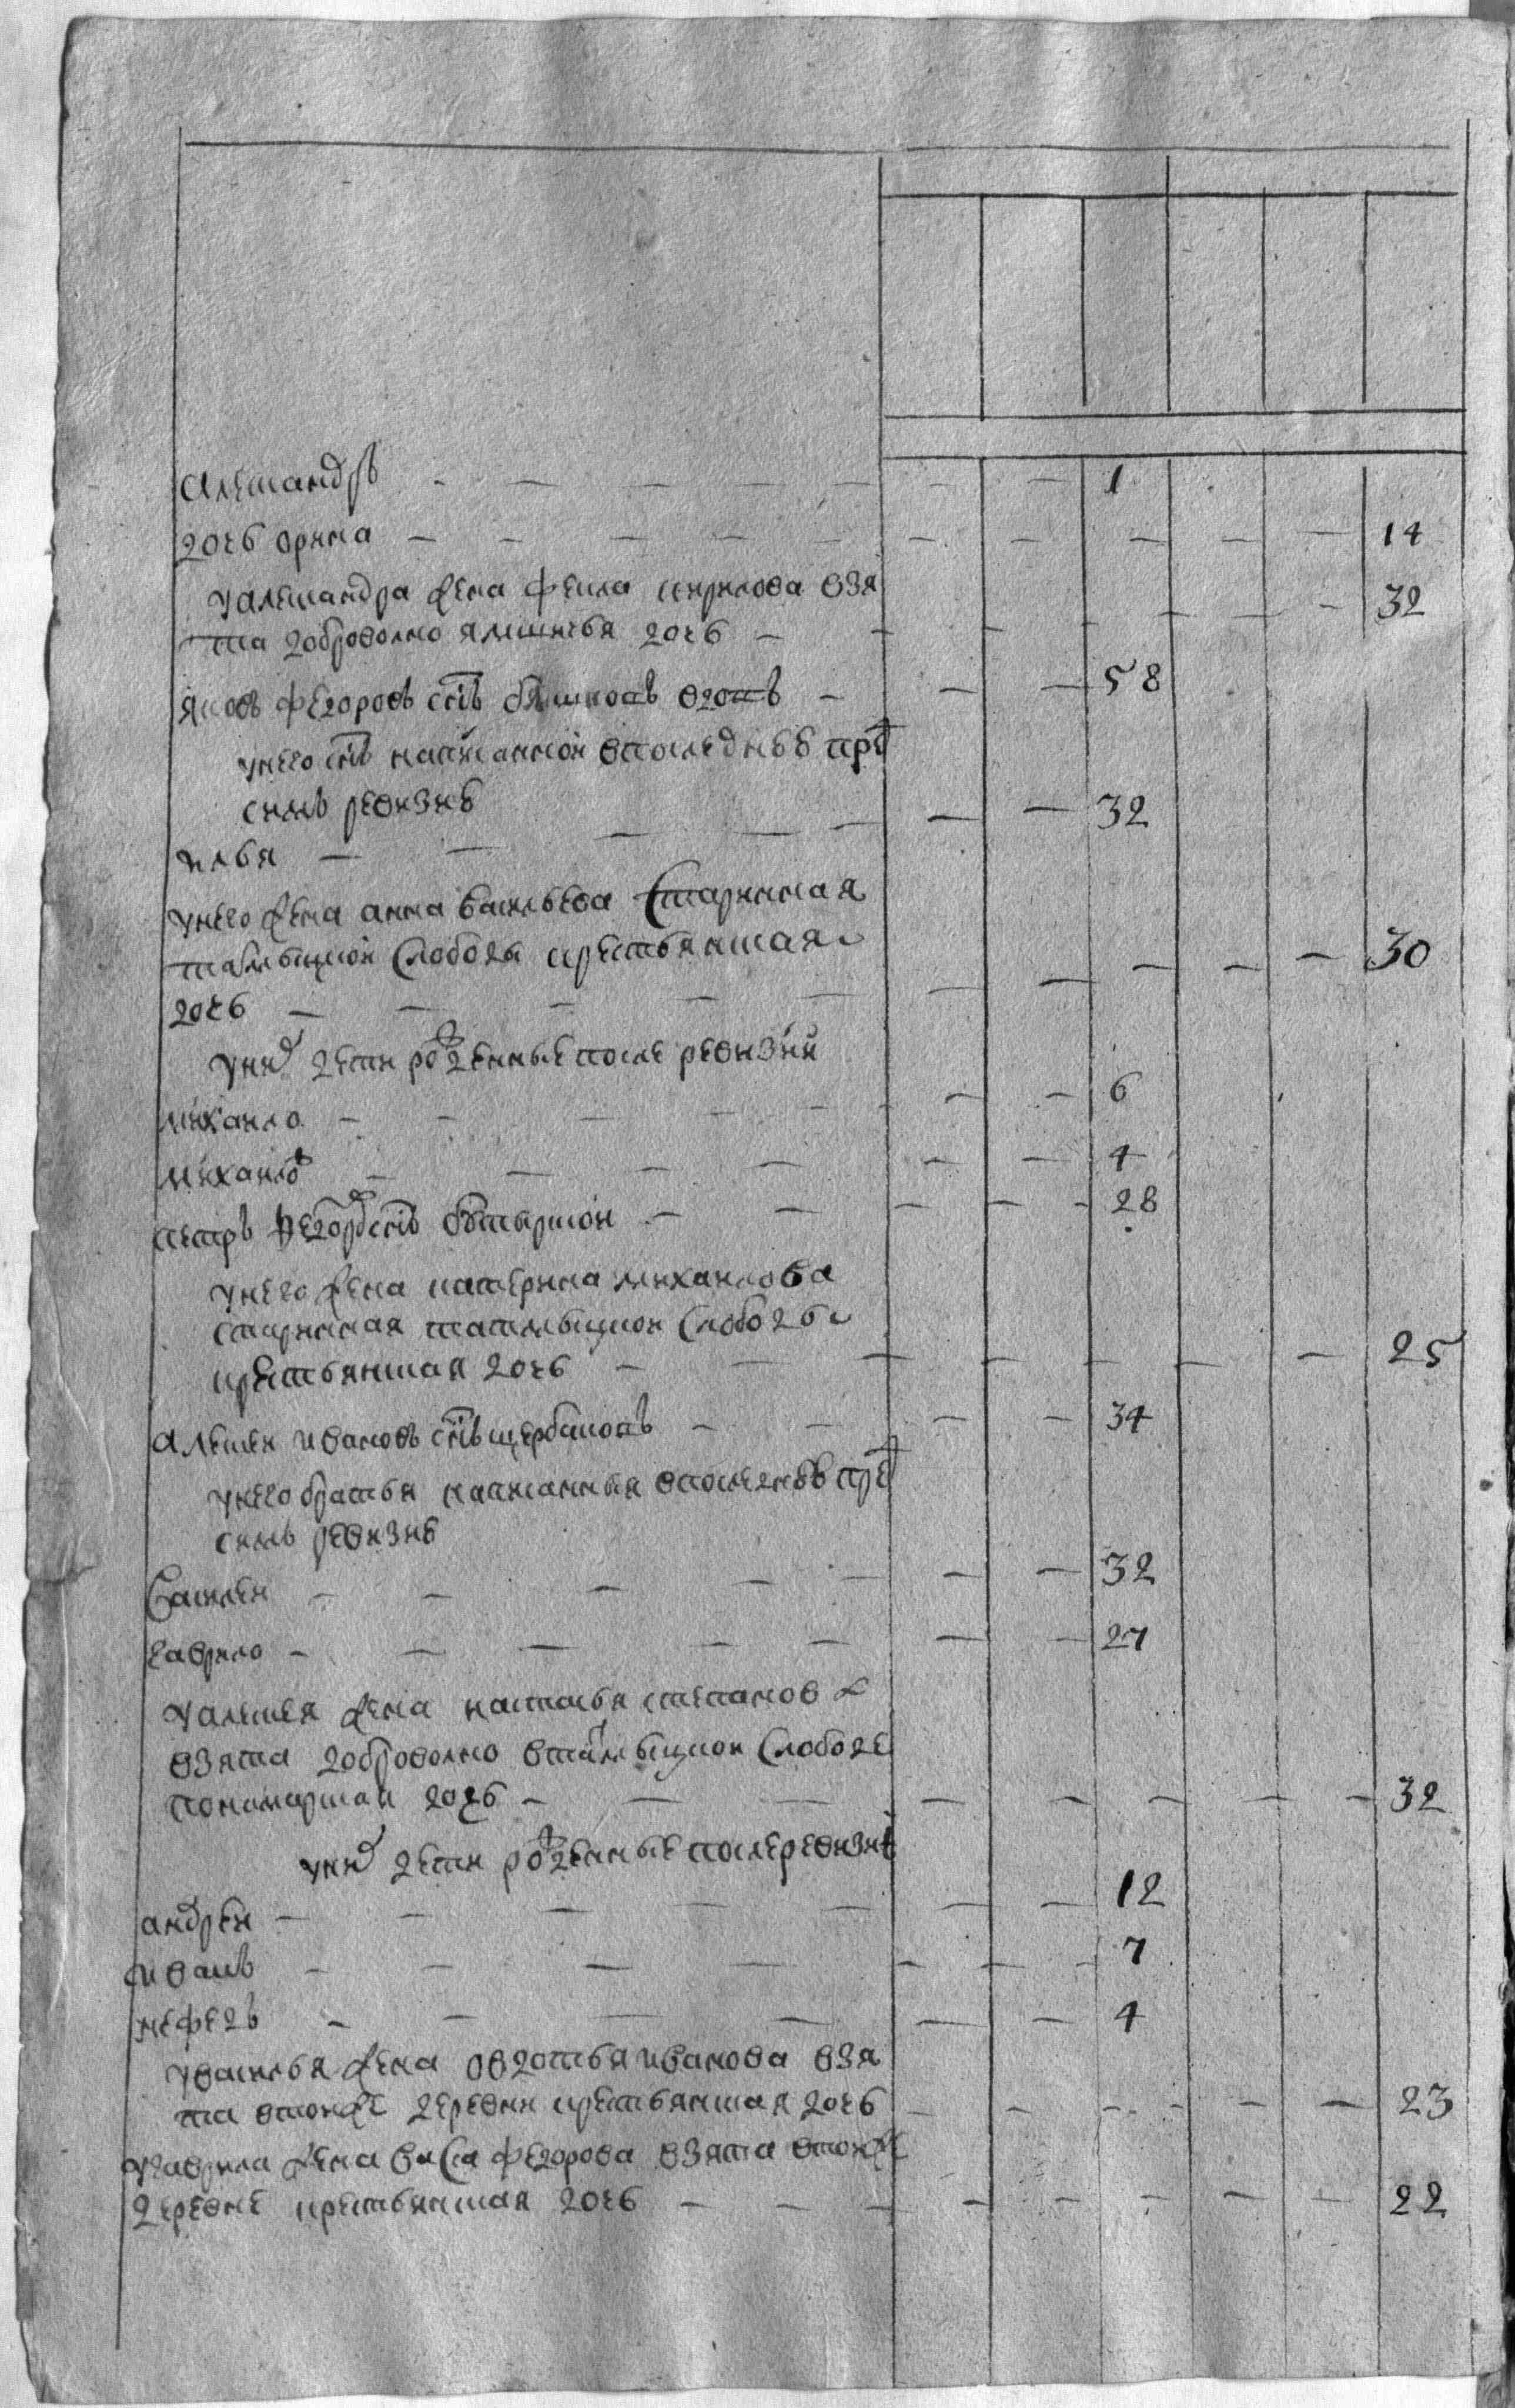 Алеѯандръ - - - - - - - 1
дочь орина - - - - - - - - - 14
у алеѯандра жена фекла кирилова взя
та доброволно ямшичья дочь - - - - - - 32
яковъ федоровъ снъ вдовъ - - - 58
у него снъ написанной в последней пре
сими ревизии
илья - - - - - - 32
у него жена анна васильева старинная
слободы крестьянская
дочь - - - - - - - - - - 30
у них дети рожденные после ревизии
михаило - - - - - - - 6
михаило - - - - - - 4
петръ федоровъ снъ - - - - - 28
у него жена катерина михаилова
старинная слободы
крестьянская дочь - - - - - - - 25
алексеи ивановъ снъ щербаковъ - - - - 34
у него братья написанныя в последней пре
симъ ревизии
василеи - - - - - - - 32
гаврило - - - - - - - 27
у алексея жена настасья степанова
взята доброволно слободе
пономарская дочь - - - - - - - - 32
у них дети рожденные после ревизии
андреи - - - - - - - 12
иванъ - - - - - - - 7
нефедъ - - - - - - 4
у василья жена авдотья иванова взя
та в тои же деревни крестьянская дочь - - - - - - 23
у гаврила жена васса федорова взята в тои же
деревне крестьянская дочь - - - - - - - - 22